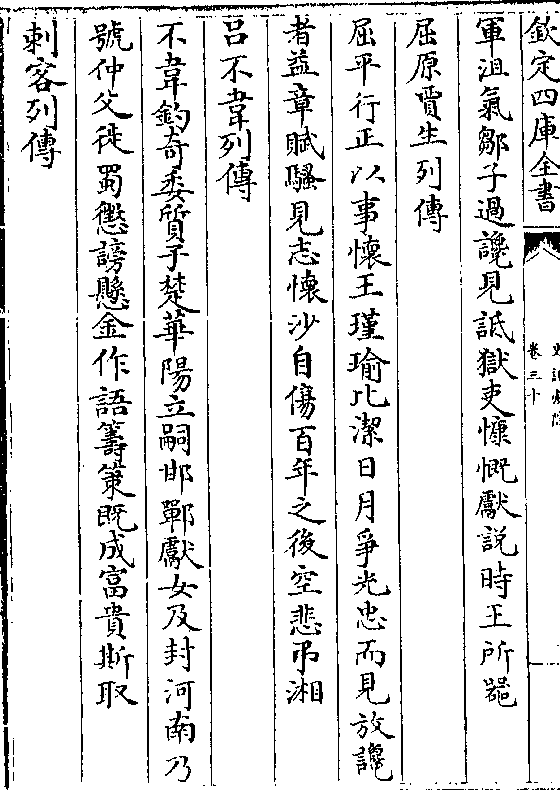 欽定四庫全書
卷三十
軍沮氣鄒子過讒見詆獄吏慷慨獻説時王所噐
屈原賈生列傳
屈平行正以事懷王瑾瑜比潔日月爭光忠而見放讒
者益章賦騷見志懷沙自傷百年之後空悲弔湘
吕不韋列傳
不韋釣奇委質子楚華陽立嗣邯鄲獻女及封河南乃
號仲父徙蜀懲謗懸金作語籌策既成富貴斯取
刺客列傳